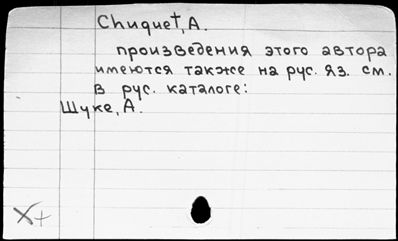 Chuquet, A.
произведения этого автора
имеются также на рус. яз. см.
в рус. каталоге:
Щуке, А.